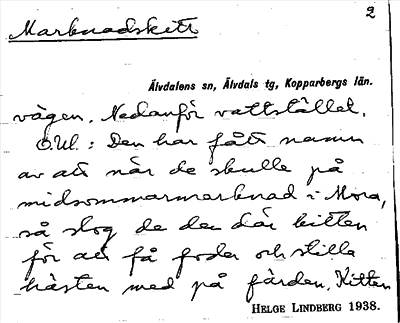 2
Marknadskitt
Älvdalens sn, Älvdals tg, Kopparbergs län.
vägen. Nedanför vattstället.
O.Ul.: Den har fått namn
av att när de skulle på
midsommarmarknad i Mora,
så slog de den där kitten
för att få foder och stilla
hästen med på färden. Kitten
HELGE LINDBERG 1938.